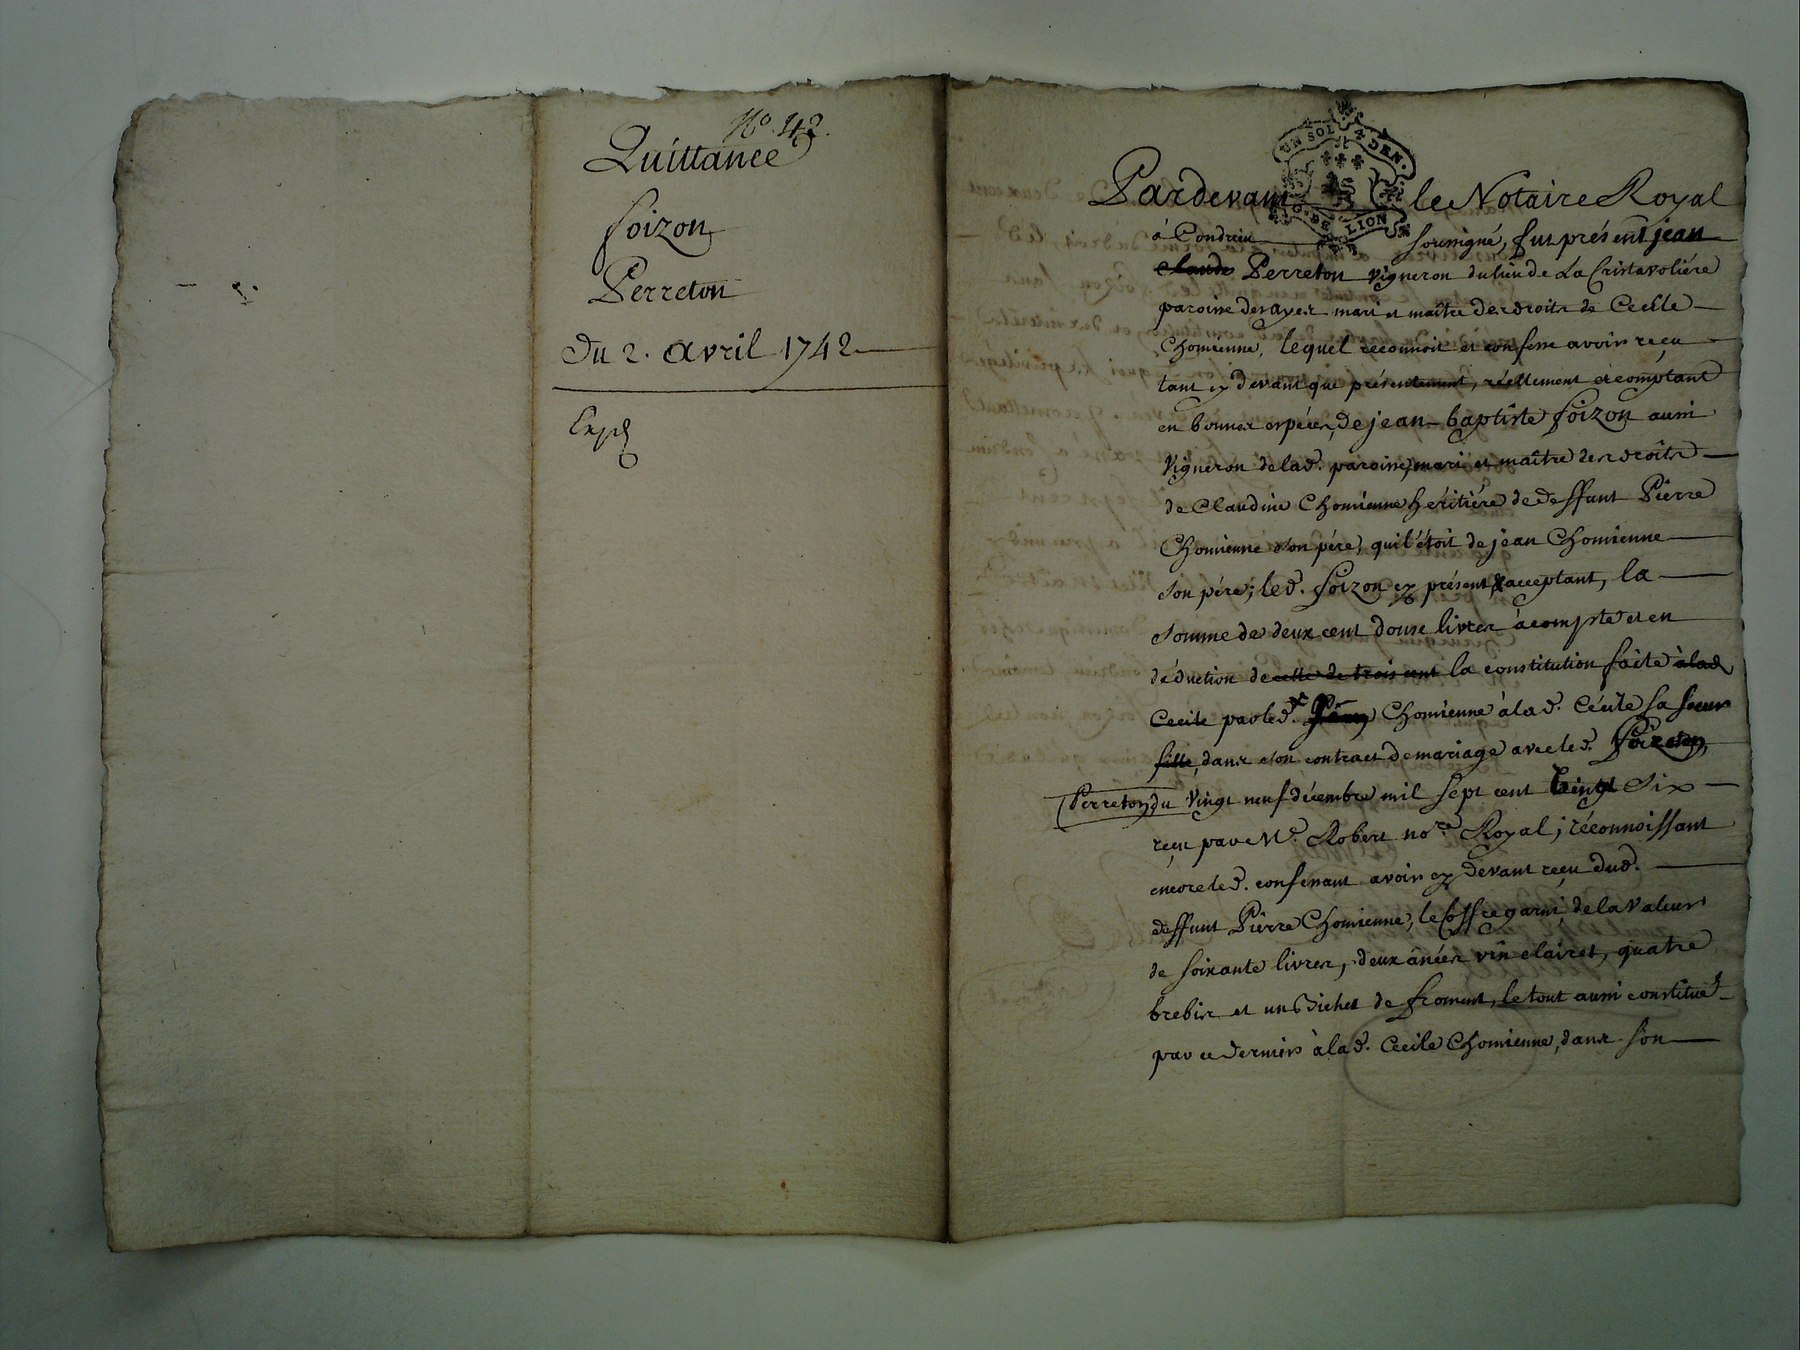 No. 42.
Quittance
Foizon
Perreton
Du 2. avril 1742
Expd
UN SOL 4 DEN.
G. DE LION
Pardevant le Notaire Royal
à Condrieu soussigné, fut présent jean
claude Perreton vigneron du lieu de La Cristavoliére
paroisse des ayes mari et maître des droits de Cecile
Chomienne, lequel reconnoit et confesse avoir reçu
tant cy devant que présentement, réellement et comptant
en bonnes espéces, de jean-baptiste Foizon aussi
vigneron de lad. paroisse, mari et maître des droits
de Claudine Chomienne heritiére de deffunt Pierre
Chomienne son pére, qui l'étoit de jean Chomienne
son pére; led. Foizon cy présent & acceptant, la
somme de deux cent douze livres àcompte et en
déduction de celle de trois cent la constitution faite à lad
Cecile par led. Chomienne à lad. Cécile sa soeur
fille, dans son contract de mariage avec led. Foizon
Perreton, du vingt neuf décembre mil sept cent vingt six
reçu par Me. Robert nore. Royal; réconnoissant
encore led. confessant avoir cy devant reçu dud.
deffunt Pierre Chomienne, le coffre garni, de la valeur
de soixante livres, deux ânées vin clairet, quatre
brebis et un bichet de froment, le tout aussi constitué
par ce dernier à lad. Cecile Chomienne, dans son